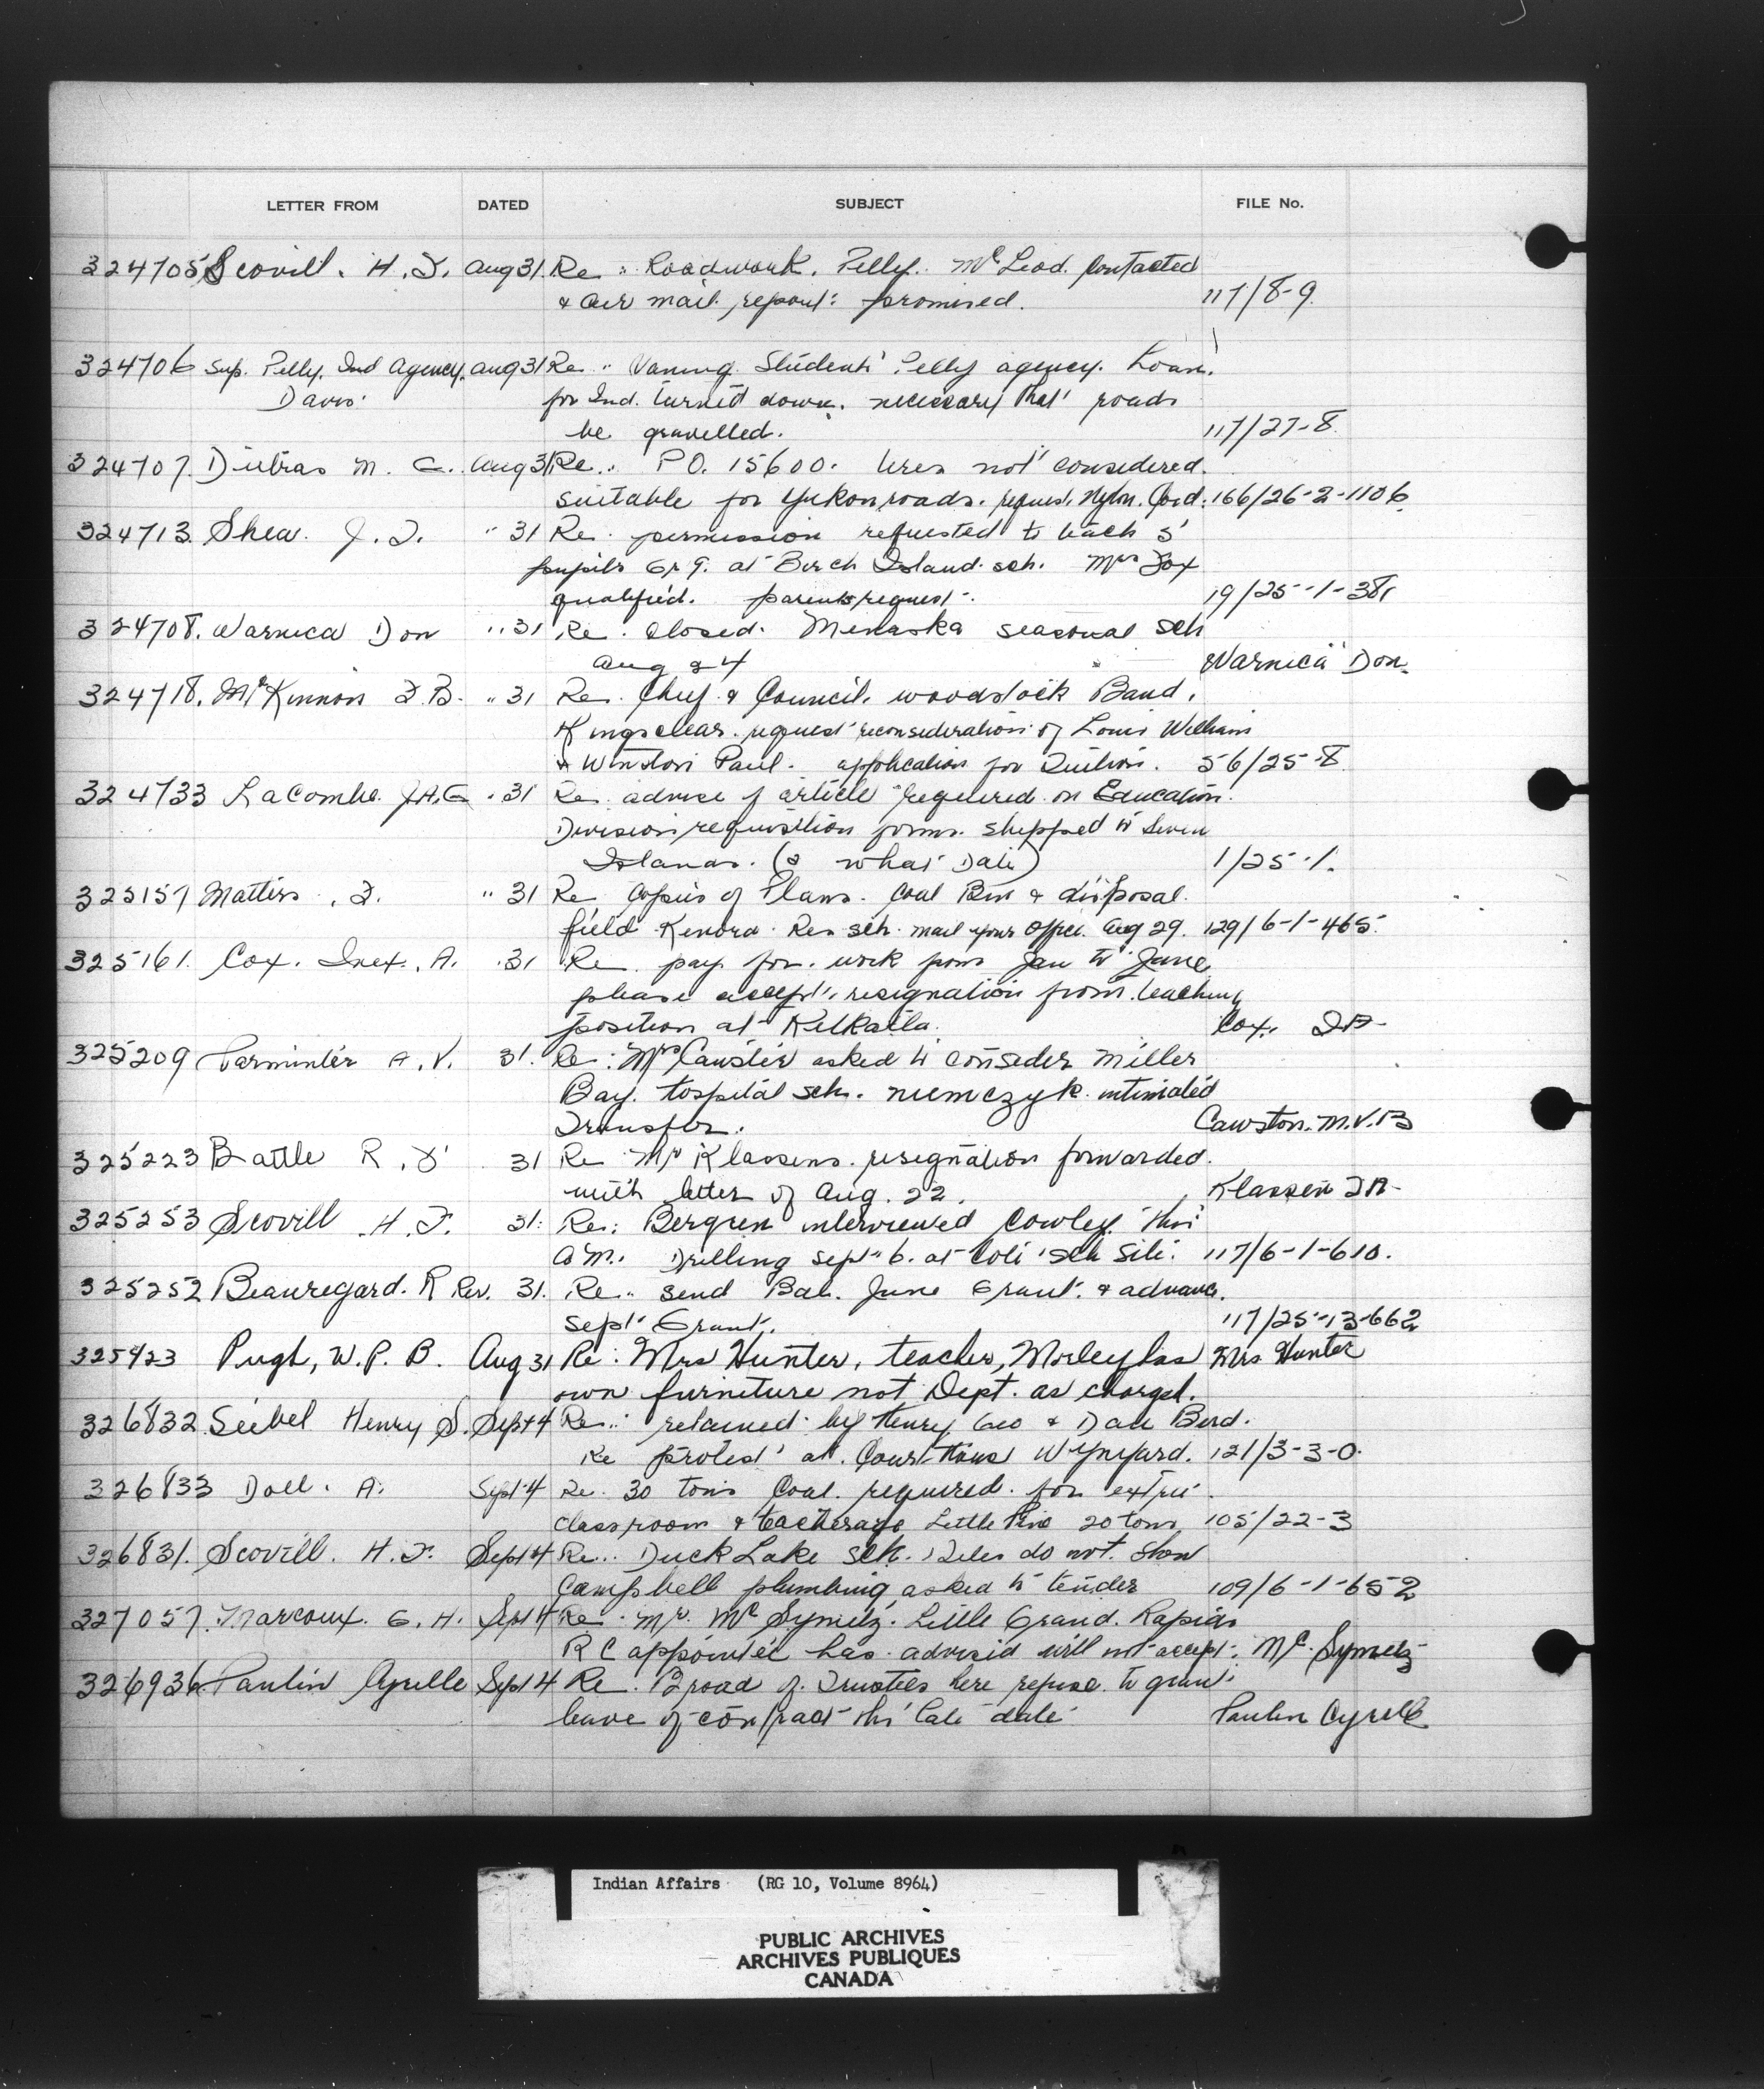 LETTER FROM DATED SUBJECT FILE No.
324705 Scovill. H. J. Aug 31. Re: Roadwork. Pelly. McLeod. Contacted
& air mail report: promised. 117/8-9.
324706 Sup. Pelly. Ind Agency. Aug 31 Re: Students' Pelly agency. Loan.
Davis. for Ind. turned down. necessary that roads
be gravelled. 117/27-8.
324707. Dubras M. G. Aug 31 Re: P.O. 15600. tires not considered.
suitable for Yukon roads. request. Nylon. Cord. 166/26-2-1106.
324713 Shea. J. T. " 31 Re. permission requested to teach 5
pupils Gr 9. at Birch Island sch. Mrs Fox
qualified. parents request. 19/25-1-381
324708. Warnica Don " 31 Re. Closed. Menaska seasonal sch
Aug 24 Warnica Don.
324718. McKinnon F. B. " 31 Re. Chief & Council. Woodstock Band.
Kingsclear. request reconsideration of Louis William
& Winston Paul. application for Tuition. 56/25-8
324733 LaCombe. J.A.G " 31 Re. advise if article required on Education.
Division requisition forms. shipped to Seven
Islands. (& what Date) 1/25-1.
325157 Matters, F. " 31 Re. Copies of Plans. Coal Bin & disposal.
field Kenora. Res sch. mail your office. Aug 29. 129/6-1-465.
325161. Cox. Inez. A. 31 Re. pay for. work from Jan to June
please accept resignation from teaching
position at Kitkatla. Cox.
325209 Parminter A. V. 31. Re: Mrs Cawston asked to consider Miller
Bay. Hospital sch. Niemczyk. intimated
Transfer. Cawston. M.V.B
325223 Battle R. F. 31 Re Mr Klassens. resignation forwarded.
with letter of Aug. 22. Klassen
325253 Scovill H. J. 31. Re: Bergren interviewed Cowley this
A.M. Drilling Sept 6. at Cote sch site. 117/6-1-610.
325252 Beauregard. R Rev. 31. Re. send Bal. June Grant. & advance.
Sept Grant. 117/25-13-662
325423 Pugh, W. P. B. Aug 31 Re: Mrs Hunter, teacher, Morley has Mrs Hunter
own furniture not Dept. as charged.
326832 Seibel Henry S. Sept 4 Re: retained by Henry, Geo & Dan Bird.
Re protest at. Court House Wynyard. 121/3-3-0.
326833 Doll. A. Sept 4 Re. 30 tons Coal. required. for extra
classroom & teacherage Little Pine 20 tons 105/22-3
326831. Scovill. H. J. Sept 4 Re. Duck Lake sch. files do not. show
Campbell plumbing asked to tender 109/6-1-652
327057. Marcoux. G. H. Sept 4 Re. Mr. McSymetz. Little Grand. Rapids
R C appointee has advised will not accept. McSymetz
326936 Paulin Cyrille Sept 4 Re. Broad of Trustees here refuse to grant
leave of contract this late date Paulin Cyrille
Indian Affairs (RG 10, Volume 8964)
PUBLIC ARCHIVES
ARCHIVES PUBLIQUES
CANADA